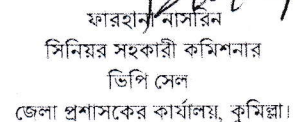 ফারহানা নাসরিন
সিনিয়র সহকারী কমিশনার
ভিপি সেল
জেলা প্রশাসকের কার্যালয়, কুমিল্লা।